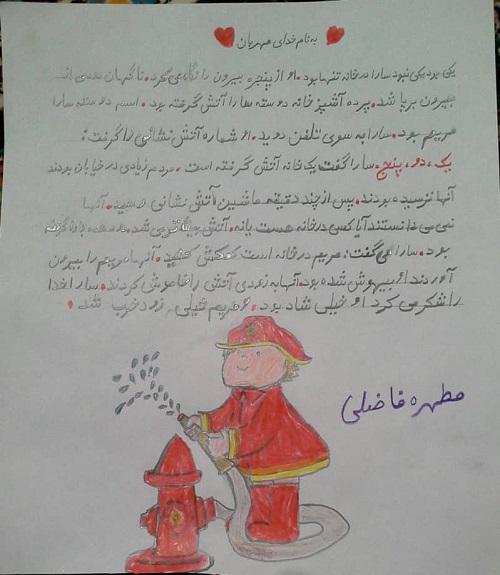 به نام خدای مهربان
یکی بود یکی نبود سارا در خانه تنها بود. او از پنجره بیرون را نگاه می کرد. ناگهان صدایی از
بیرون برپا شد. پرده آشپزخانه دوسته سارا آتش گرفته بود. اسم دوسته سارا
مریم بود. سارا به سوی تلفن دوید. او شماره آتش نشانی را گرفت:
یک، دو، پنج. سارا گفت یک خانه آتش گرفته است. مردم زیادی در خیابان بودند
آنها ترسیده بودند. پس از چند دقیقه ماشین آتش نشانی رسید. آنها
نمی دانستند آیا کسی در خانه هست یا نه. آتش می شد. همه جا را گرفته
بود. سارا می گفت: مریم در خانه است کمکش کنید. آنها مریم را بیرون
آوردند او بیهوش شده بود. آنها به زودی آتش را خاموش کردند. سارا خدا
را شکر می کرد او خیلی شاد بود. و مریم خیلی زود خوب شد.
مطهره فاضلی